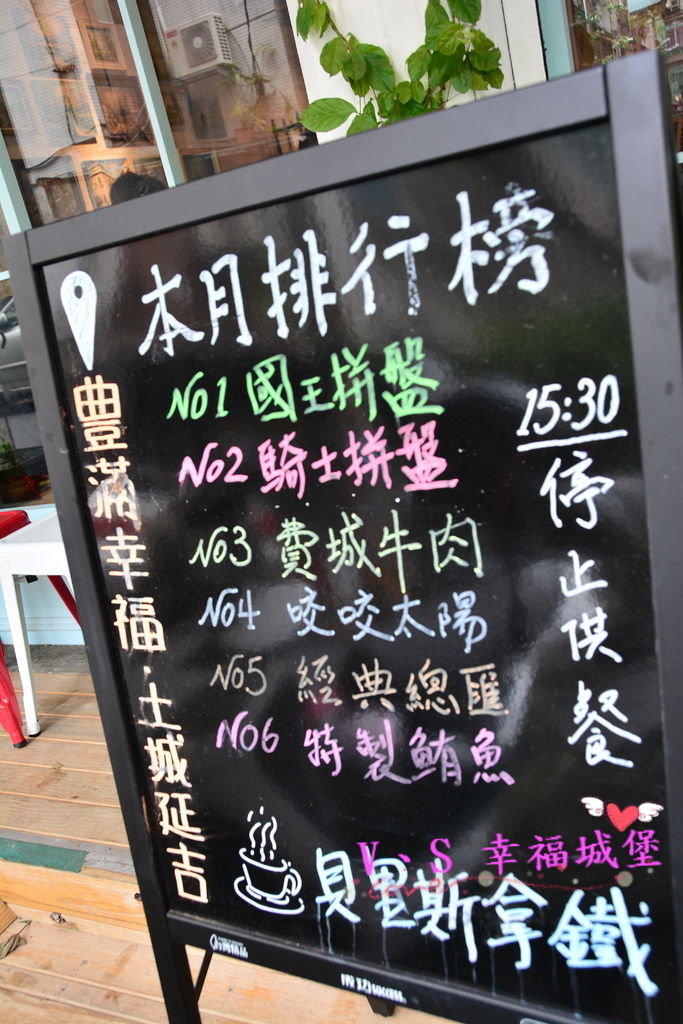 本月排行榜
No1 國王拼盤
No2 騎士拼盤
No3 費城牛肉
No4 咬咬太陽
No5 經典總匯
No6 特製鮪魚
15:30
停止供餐
豊滿幸福·土城延吉
V.S 幸福城堡
貝里斯拿鐵
SUCCESS